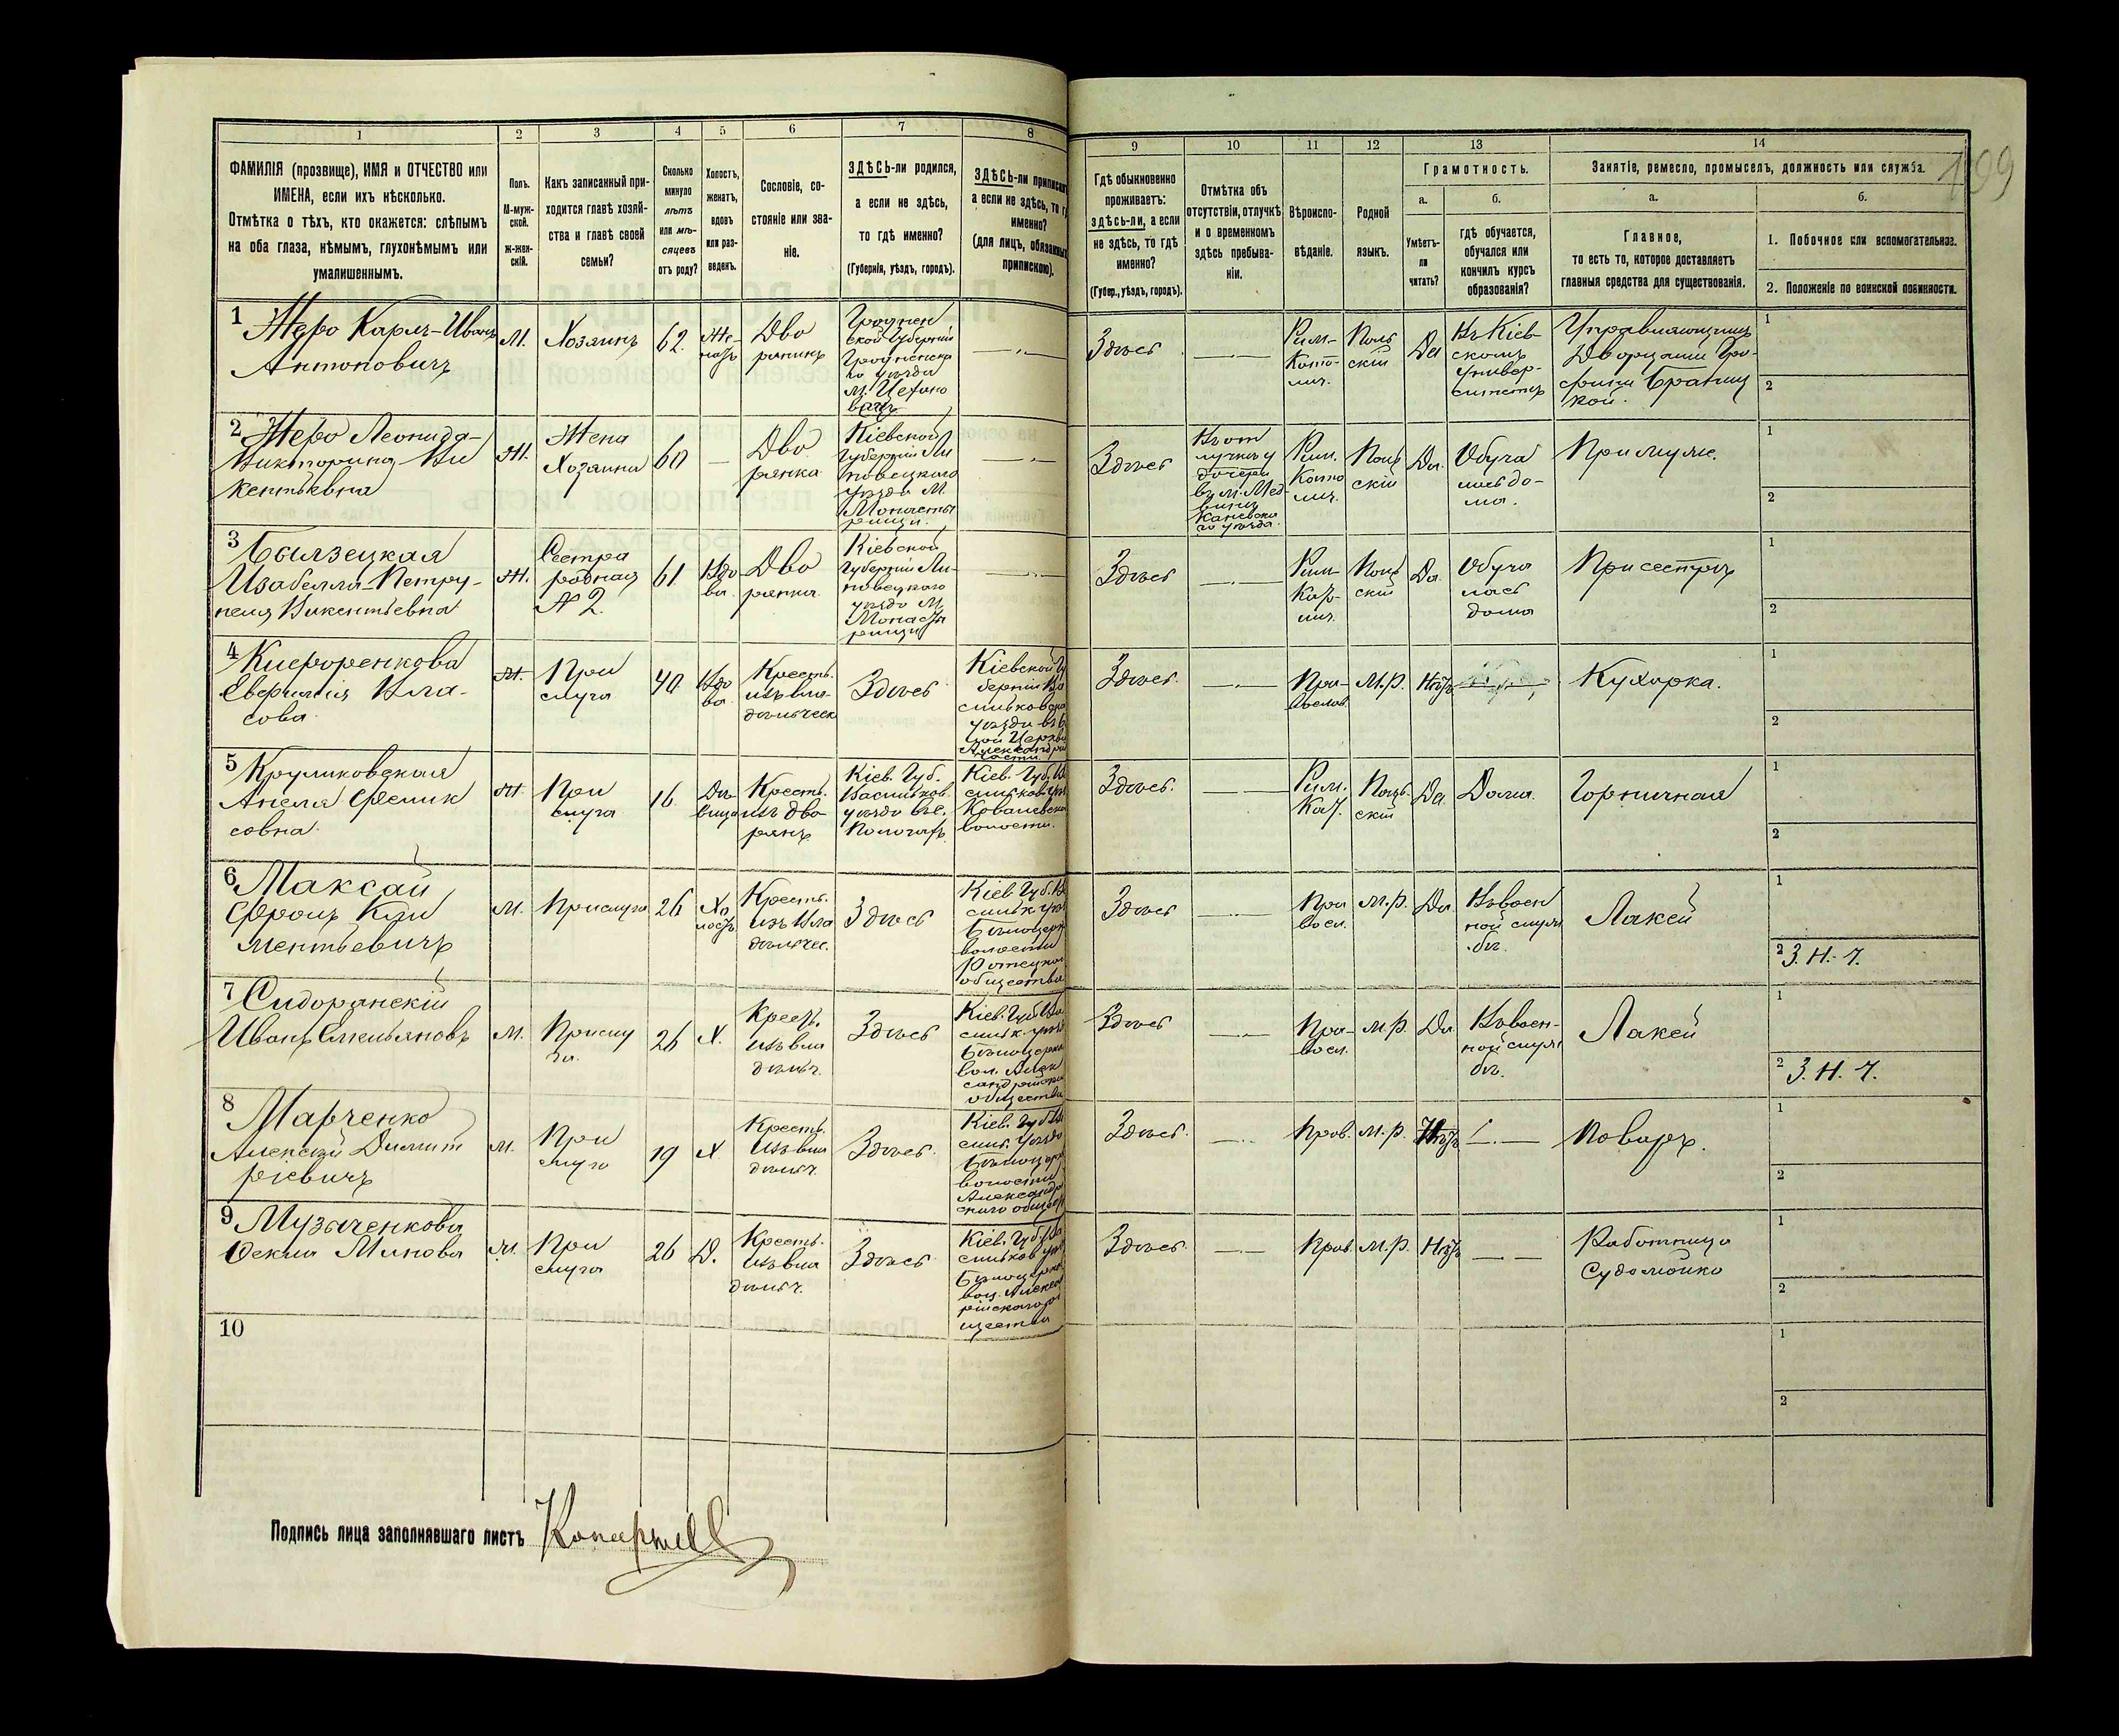 1 2 3 4 5 6 7 8
ФАМИЛІЯ (прозвище), ИМЯ и ОТЧЕСТВО или
ИМЕНА, если ихъ нѣсколько.
Отмѣтка о тѣхъ, кто окажется: слѣпымъ
на оба глаза, нѣмымъ, глухонѣмымъ или
умалишеннымъ.
Полъ.
М-муж-
ской.
ж-жен-
скій.
Какъ записанный при-
ходится главѣ хозяй-
ства и главѣ своей
семьи?
Сколько
минуло
лѣтъ
или мѣ-
сяцевъ
отъ роду?
Холостъ,
женатъ,
вдовъ
или раз-
веденъ.
Сословіе, со-
стояніе или зва-
ніе.
ЗДѢСЬ-ли родился,
а если не здѣсь,
то гдѣ именно?
(Губернія, уѣздъ, городъ).
ЗДѢСЬ-ли приписанъ
а если не здѣсь, то гдѣ
именно?
(для лицъ, обязанныхъ
припискою).
9 10 11 12 13 14
Гдѣ обыкновенно
проживаетъ:
здѣсь-ли, а если
не здѣсь, то гдѣ
именно?
(Губер., уѣздъ, городъ).
Отмѣтка объ
отсутствіи, отлучкѣ
и о временномъ
здѣсь пребыва-
ніи.
Вѣроиспо-
вѣданіе.
Родной
языкъ.
Грамотность.
а.
Умѣетъ-
ли
читать?
б.
гдѣ обучается,
обучался или
кончилъ курсъ
образованія?
Занятіе, ремесло, промыселъ, должность или служба.
а.
Главное,
то есть то, которое доставляетъ
главныя средства для существованія.
б.
1. Побочное или вспомогательное.
2. Положеніе по воинской повинности.
199
1 Жеро Карлъ-Иванъ
Антоновичъ
М.
Хозяинъ
62.
Же-
натъ
Дво
рянинъ
Гроднен
ской Губерніи
Гродненска
го уѣзда
м.
Здѣсь
Рим-
Като-
лич.
Поль
скій
Да
Въ Кіев-
скомъ
Универ-
ситетѣ
Управляющимъ
Дворцами Гра-
фини Браниц
кой.
1
2
2 Жеро Леонида-
Викторина Ви
кентьевна
Ж.
Жена
Хозяина
60
Дво
рянка
Кіевской
Губерніи Ли
повецкаго
уѣзда М.
Монасты
рища.
Здѣсь
Въ от
лучкѣ у
дочери
въ м. Мед-
винѣ
Каневска
го уѣзда.
Рим.
Като
лич.
Поль
скій
Да.
Обуча
лась до-
ма.
При мужѣ.
1
2
3 Балзецкая
Изабелла-Петру-
неля Викентьевна
Ж.
Сестра
родная
№ 2.
61
Вдо
ва.
Дво
рянка.
Кіевской
Губерніи Ли-
повецкаго
уѣзда М.
Монасты
рища
Здѣсь
Рим-
Кат-
лич.
Поль
скій
Да.
Обуча
лась
дома
При сестрѣ
1
2
4 Кифоренкова
Евфимія Вла-
сова.
Ж.
При
слуга
40
Вдо
ва.
Крест.
изъ вла-
дѣльческ
Здѣсь
Кіевской Гу
берніи Ва
сильковска
уѣзда въ Б
лой Церкви
Здѣсь.
Пра-
вослав.
М.р.
Нѣтъ
Кухарка.
1
2
5 Круликовская
Анеля Феликсовна.
Ж.
При
слуга
16
Дѣ-
вица
Крест.
изъ дво-
рянъ
Кіев. Губ.
Васильков.
уѣзда въ с.
Пологахъ
Кіев. Губ. Ва
сильков. уѣз
Ковалевской
волости.
Здѣсь.
Рим.
Кат.
Поль.
скій
Да.
Дома.
Горничная
1
2
6 Максай
Фролъ Кли
ментьевичъ
М.
Прислуга
26
Хо
лостъ
Крест.
изъ вла
дѣльчес.
Здѣсь
Кіев. Губ. Ва
сильк. уѣз
Бѣлоцерк
волости
общества
Здѣсь
Пра
восл.
М.р.
Да
Въ воен
ной служ
бѣ.
Лакей
1
2 З.Н.Ч.
7 Сидорянскій
Иванъ Емельяновъ
М.
Прислу
га.
26
Х.
Крест.
изъ вла
дѣльч.
Здѣсь
Кіев. Губ. Ва
сильк. уѣз
Бѣлоцерк
вол. Алек
сандрійска
общества
Здѣсь
Пра-
восл.
М.р.
Да
Въ воен-
ной служ
бѣ.
Лакей
1
2 З.Н.Ч.
8 Марченко
Алексѣй Димит
ріевичъ
М.
При
слуга
19
Х
Крест.
изъ вла
дѣльч.
Здѣсь.
Кіев. Губ. Ва
сил. уѣзда
Бѣлоцерк
волости
Александрій
скаго общест
Здѣсь.
Прав.
М.р.
Нѣтъ
Поваръ.
1
2
9 Музыченкова
Фекла Минова
Ж.
При
слуга
26
Д.
Крест.
изъ вла
дѣльч.
Здѣсь
Кіев. Губ. Ва
сильков. уѣз
Бѣлоцерк
вол. Алексан
рійскаго об
щества
Здѣсь.
Прав.
М.р.
Нѣтъ
Работница
Судомойка
1
2
10
1
2
Подпись лица заполнявшаго листъ